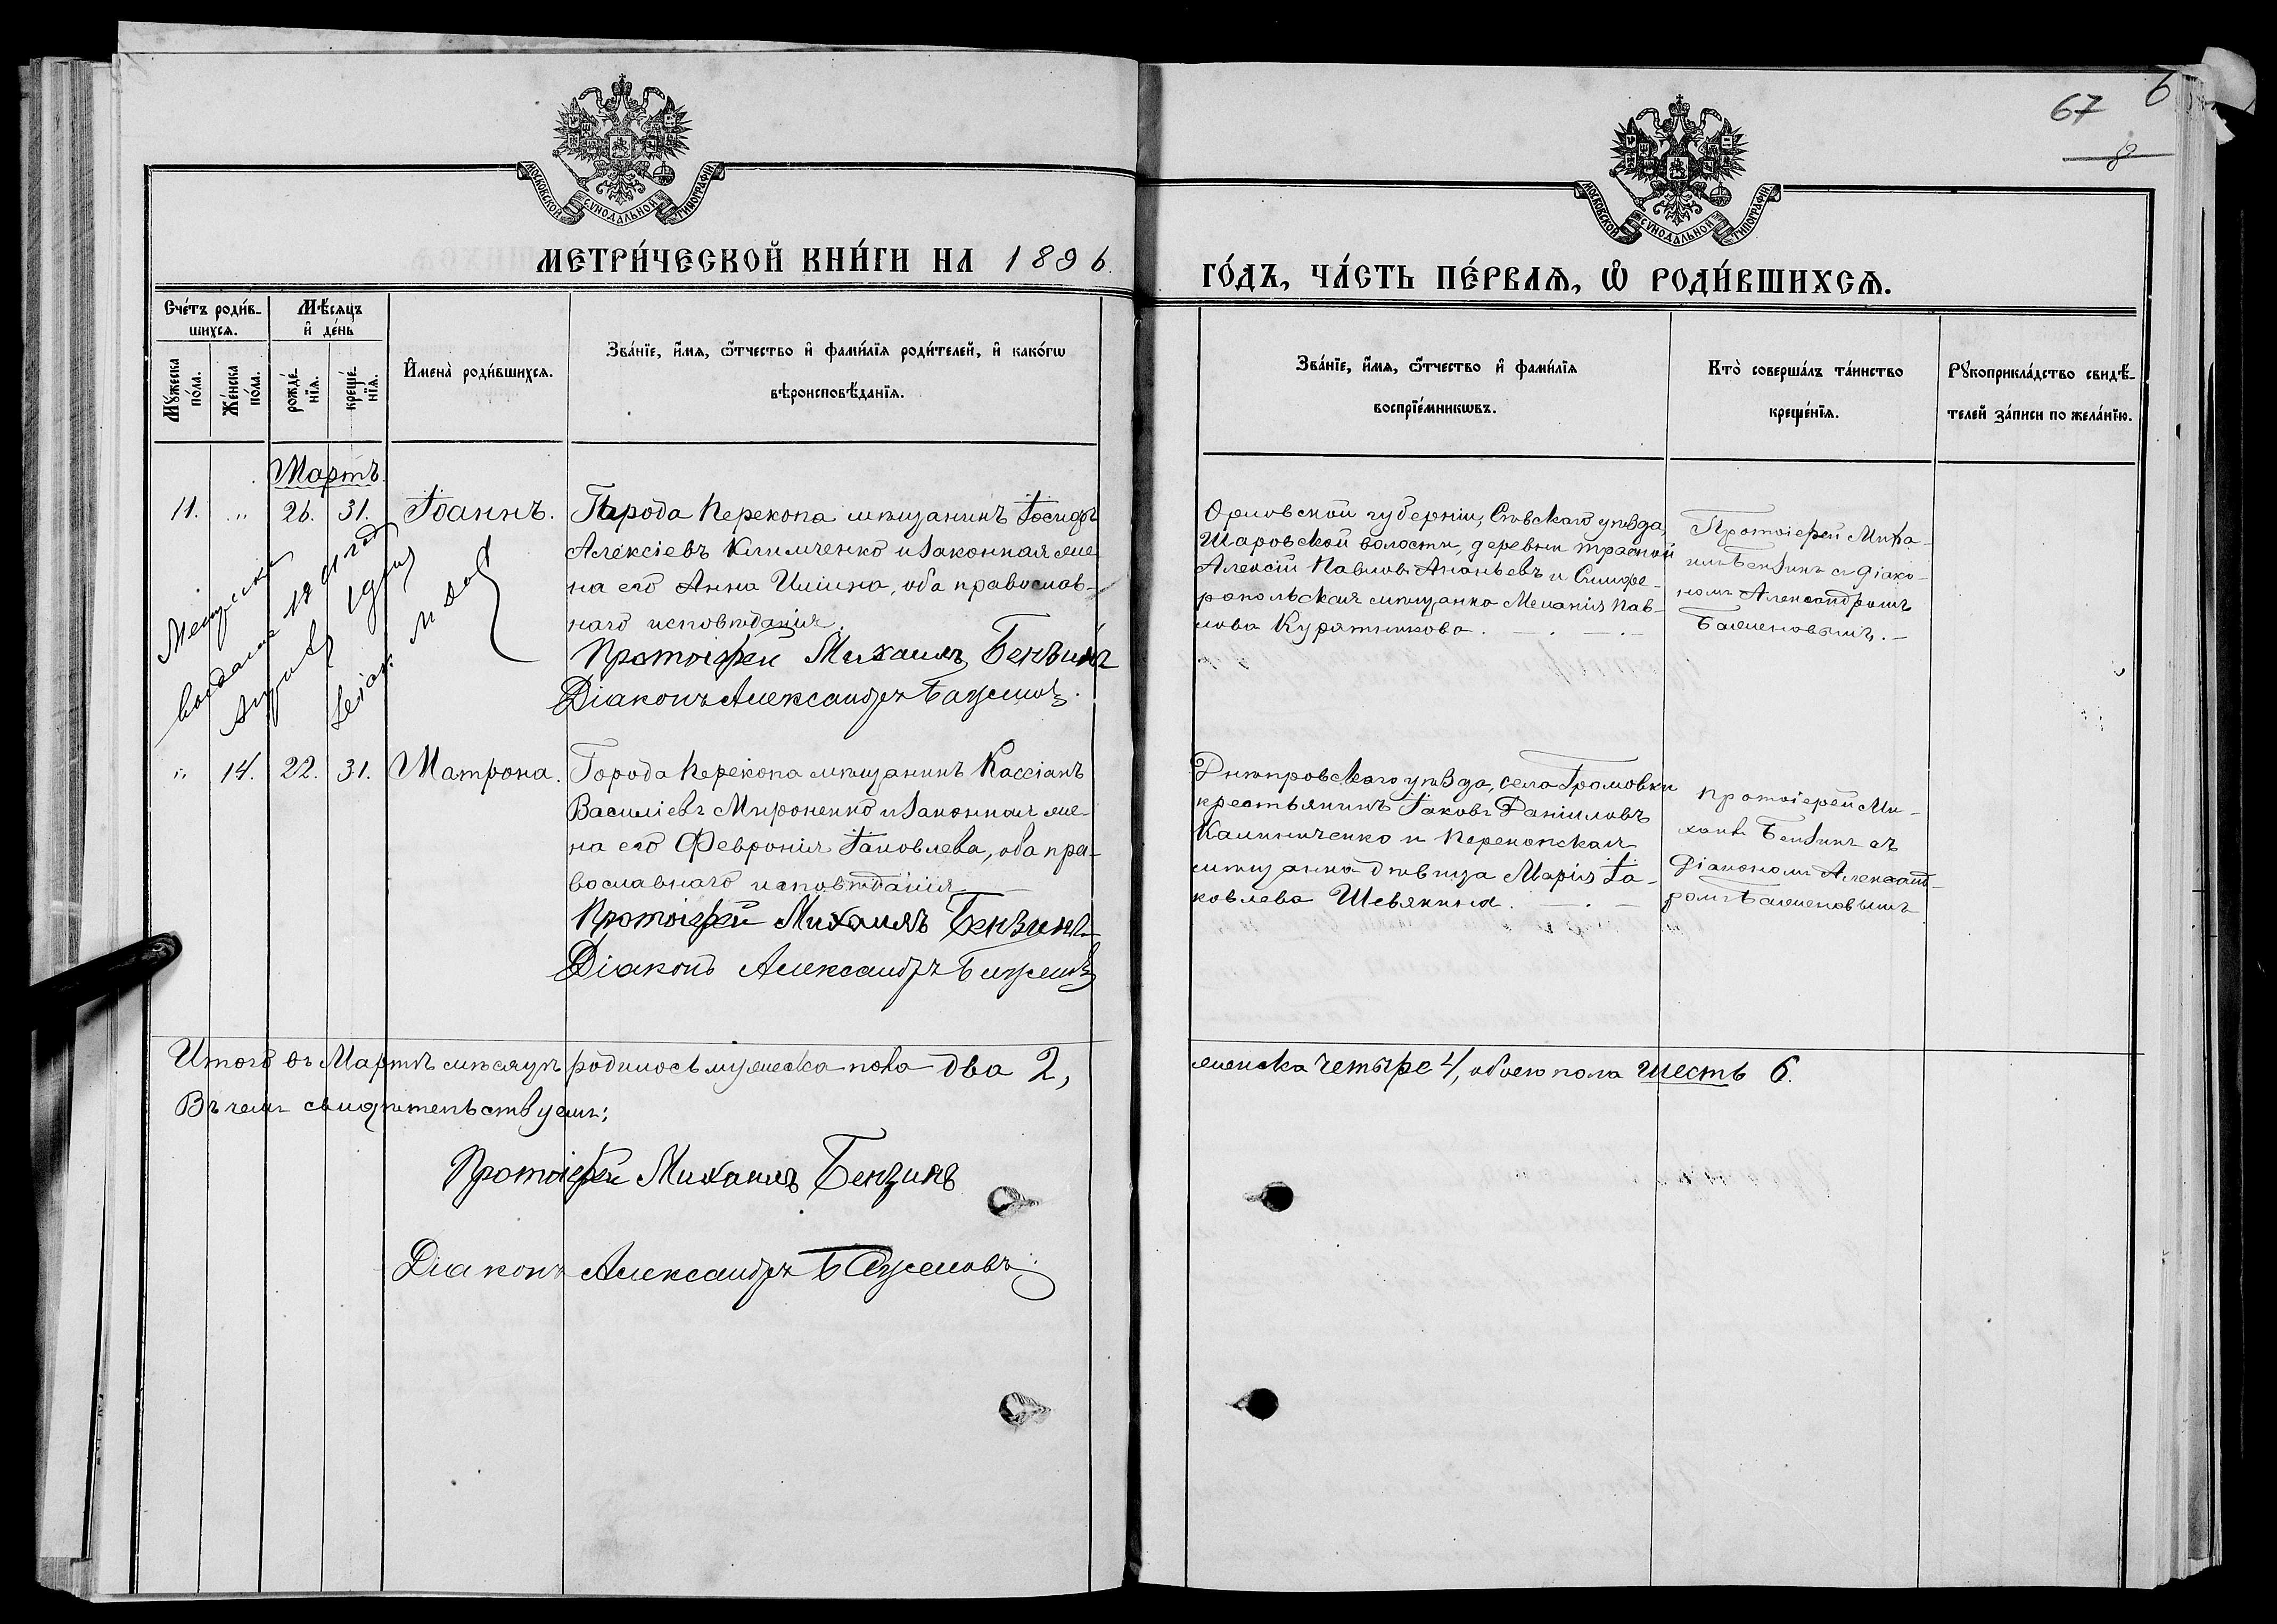 67
6
8
МОСКОВСКОЙ СѴНОДАЛЬНОЙ ТИПОГРАФІИ
МОСКОВСКОЙ СѴНОДАЛЬНОЙ ТИПОГРАФІИ
МЕТРИ́ЧЕСКОЙ КНИ́ГИ НА 1896.
ГО́ДЪ, ЧА́СТЬ ПЕ́РВАѦ, Ѡ РОДИ́ВШИХСѦ.
Сче́тъ роди́в-
шихсѧ.
Мѣ́сѧцъ
и де́нь
Мꙋ́жеска
по́ла.
Же́нска
по́ла.
рожде́-
нїѧ.
креще́-
нїѧ.
Имена̀ роди́вшихсѧ.
Зва́нїе, и́мѧ, ѻ́тчество и фами́лїѧ роди́телей, и како́гѡ
вѣроисповѣ́данїѧ.
Зва́нїе, и́мѧ, ѻ́тчество и фами́лїѧ
воспрїе́мникѡвъ.
Кто̀ соверша́лъ та́инство
креще́нїѧ.
Рꙋкоприкла́дство свидѣ́-
телей за́писи по жела́нїю.
Мартъ
11. „ 26. 31. Іоаннъ.
Города Перекопа мѣщанинъ Іосифъ
Алексіевъ Климченко и законная же-
на его Анна, оба православ-
наго исповѣданія.
Протоіерей Михаилъ Бензинъ
Діаконъ Александръ Баженовъ.
Орловской губерніи, Сѣвскаго уѣзда,
Шаровской волости, деревни
Алексій Павловъ Ананьевъ и Симфе-
ропольская мѣщанка Меланія Пав-
лова Курятникова.
Протоіерей Миха-
илъ Бензинъ съ діако-
номъ Александромъ
Баженовымъ.
выдана 1911 год
„ 14. 22. 31. Матрона.
Города Перекопа мѣщанинъ Кассіанъ
Василіевъ Мироненко и законная же-
на его Февронія Іаковлева, оба пра-
вославнаго исповѣданія
Протоіерей Михаилъ Бензинъ
Діаконъ Александръ Баженовъ
Днѣпровскаго уѣзда, села Громовки
крестьянинъ Іаковъ Даніиловъ
Калиниченко и Перекопская
мѣщанка дѣвица Марія Іа-
ковлева Шевякина.
Протоіерей Ми-
хаилъ Бензинъ съ
Діакономъ Александ-
ромъ Баженовымъ
Итого въ Мартѣ мѣсяцѣ родилось мужеска пола два 2,
женска четыре 4, обоего пола шесть 6.
Въ чемъ свидѣтельствуемъ:
Протоіерей Михаилъ Бензинъ
Діаконъ Александръ Баженовъ